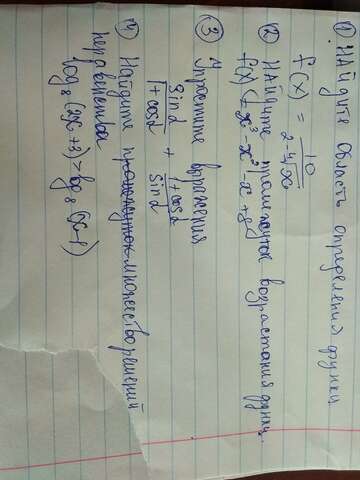 ① Найдите область определения функци
f(x) = 10 / 2-4√x
② Найдите промежуток возрастания функц.
f(x) = x³-x²-x+8
③ Упростите выражения
sinα / 1+cosα + 1+cosα / sinα
④ Найдите множество решений
неравенства
log₈(2x+3)>log₈(x-1)